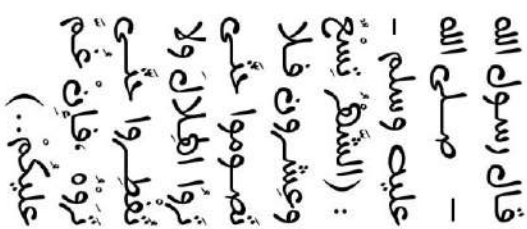 قال رسول الله
- صلى الله
عليه وسلم -
: (الشهر تسع
وعشرون فلا
تصوموا حتى
تروا الهلال ولا
تفطروا حتى
تروه، فإن غم
عليكم ..)